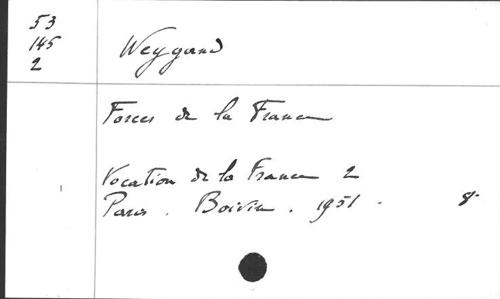 53
145
2
Weygand
Forces de la France
Vocation de la France 2
Paris. Boivin. 1951. 8°